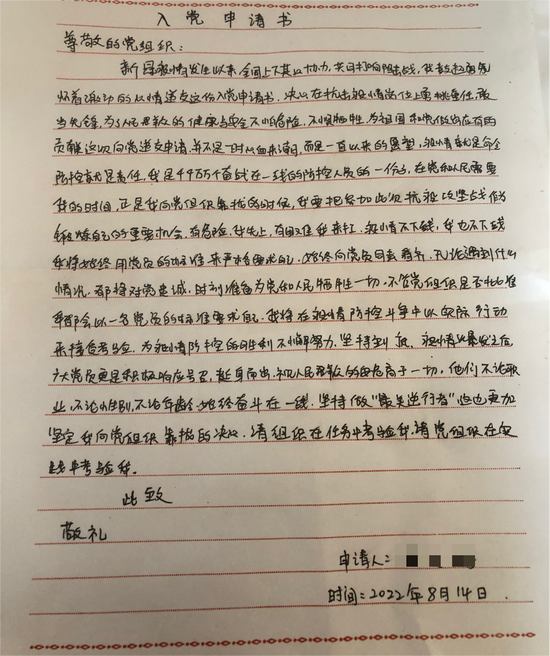 入党申请书
尊敬的党组织：
新冠疫情发生以来，全国上下齐心协力，共同打响阻击战，我
怀着激动的心情递交这份入党申请书，决心在抗击疫情岗位上勇挑重任，敢
当先锋，为了人民群众的健康与安全不怕危险，不惧牺牲，为祖国和党做出应有的
贡献这次向党递交申请，并不是一时心血来潮，而是一直以来的愿望，疫情就是命令
防控就是责任，我是千千万万个奋战在一线的防控人员的一份子，在党和人民需要
我的时间，正是我向党组织靠拢的时候，我要把参加此次抗疫攻坚战作为
锻炼自己的重要机会，有危险，我先上，有困难我来扛，疫情不下线，我也不下线
我将始终用党员的标准来严格要求自己，始终向党员同志看齐，无论遇到什么
情况，都将对党忠诚，时刻准备为党和人民牺牲一切，不管党组织是否批准
我都会以一名党员的标准要求自己，我将在疫情防控斗争中以实际行动
来接受考验，为疫情防控的胜利不懈努力，坚持到底，疫情爆发之后
广大党员更是积极响应号召，挺身而出，把人民群众的安危高于一切，他们不论职
业，不论性别，不论年龄，始终奋斗在一线，坚持做"最美逆行者"这也更加
坚定我向党组织靠拢的决心，请组织在任务中考验我，请党组织在实
践中考验我。
此致
敬礼
申请人：
时间：2022年8月14日.